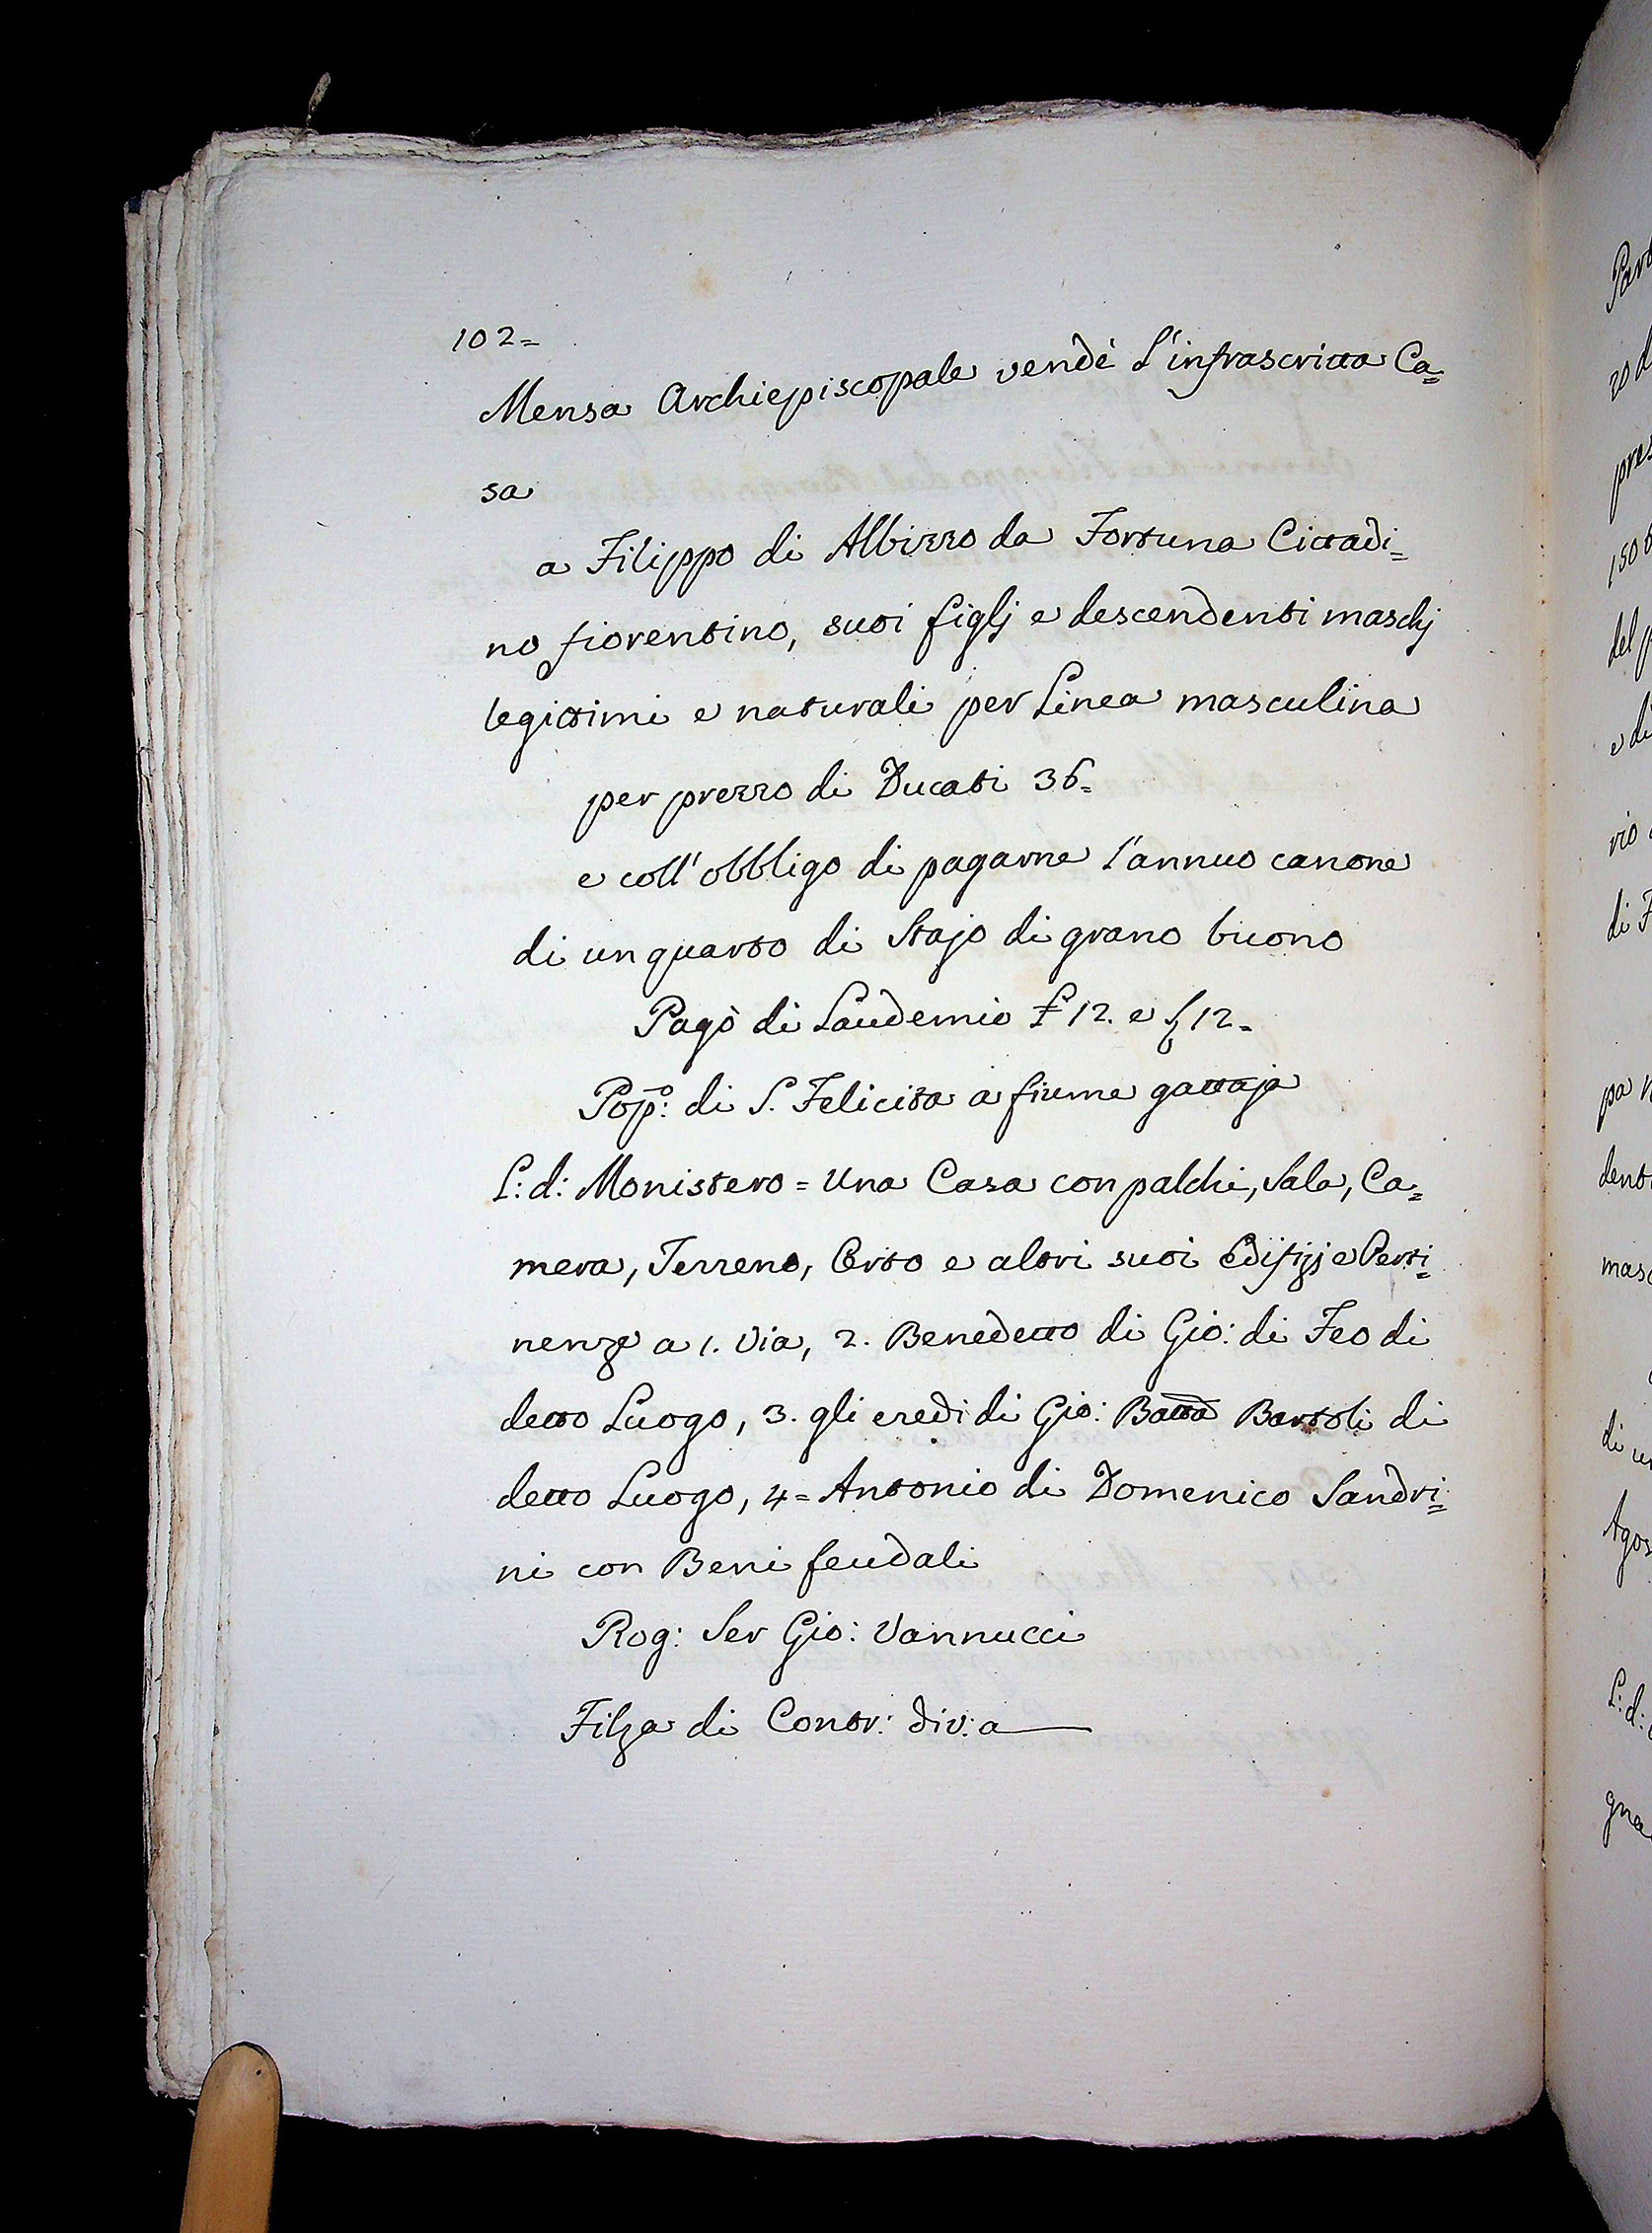 102=
Mensa Archiepiscopale vendè L'infrascritta Ca=
sa
a Filippo di Albizzo da Fortuna Cittadi=
no fiorentino, suoi figlj e descendenti maschj
legittimi e naturali per Linea masculina
per prezzo di Ducati 36=
e coll' obbligo di pagarne l'annuo canone
di un quarto di Stajo di grano buono
Pagò di Laudemio £ 12. e 12=
Pop̃: di S. Felicita a fiume gattaja
L: d: Monistero = Una Casa con palchi, Sala, Ca=
mera, Terreno, Orto e altri suoi Edifizj e Perti=
nenze a 1. Via, 2. Benedetto di Gio: di Feo di
detto Luogo, 3. gli eredi di Gio: Batta Bartoli di
detto Luogo, 4= Antonio di Domenico Sandri=
ni con Beni feudali
Rog: Ser Gio: Vannucci
Filza di Contr: div: a